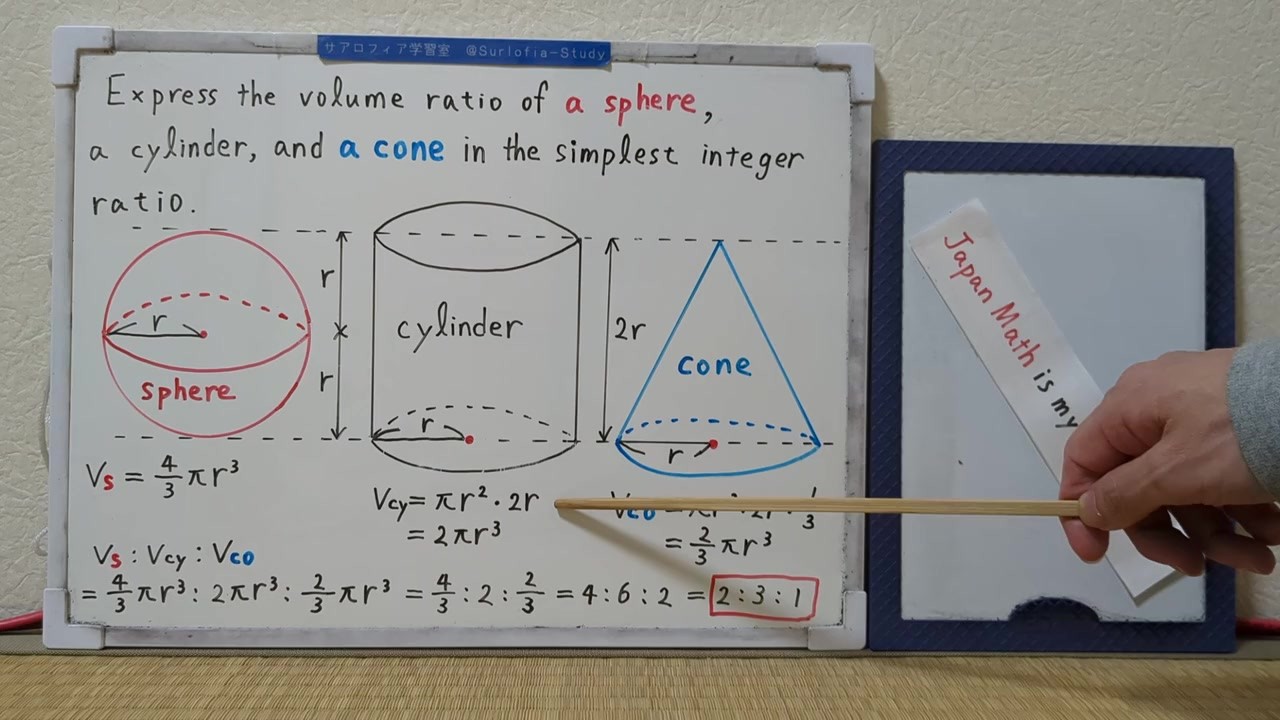 サアロフィア学習室 @Surlofia-Study
Express the volume ratio of a sphere,
a cylinder, and a cone in the simplest integer
ratio.
r
sphere
r
r
cylinder
r
2r
cone
r
Vs = 4/3 πr³
Vcy = πr² · 2r
= 2πr³
Vco
1/3
= 2/3 πr³
Vs : Vcy : Vco
= 4/3 πr³ : 2πr³ : 2/3 πr³ = 4/3 : 2 : 2/3 = 4 : 6 : 2 = 2 : 3 : 1
Japan Math is my